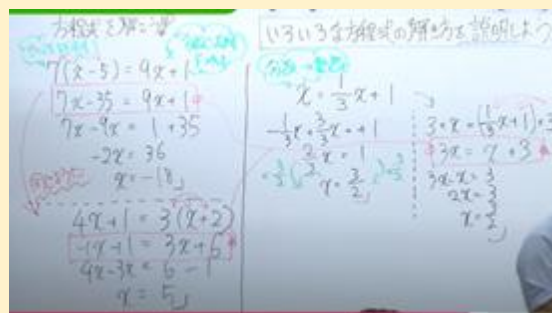 方程式を解こう
7(x-5)=9x+1
7x-35=9x+1
7x-9x=1+35
-2x=36
x=-18
4x+1=3(x+2)
4x+1=3x+6
4x-3x=6-1
x=5
いろいろな方程式の解き方を説明しよう
x=1/3x+1
-1/3x+3/3x=+1
2/3x=1
x=3/2
3×x=(1/3x+1)×3
3x=x+3
3x-x=3
2x=3
x=3/2